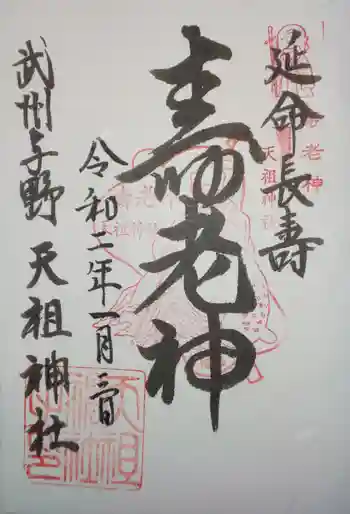 延命長寿
寿老神
令和二年一月三日
武州与野 天祖神社
老神
天祖神社